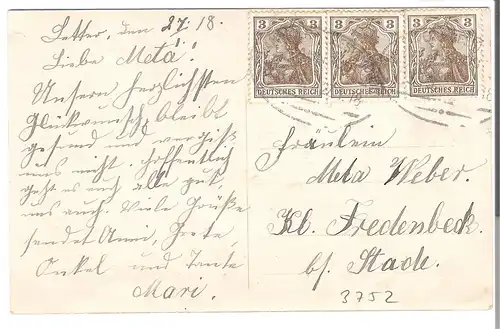 Letter, den 27. 18.
Liebe Meta!
Unsern herzlichsten
Glückwunsch, bleibt
gesund und vergiß
uns nicht. Hoffentlich
geht es euch alle gut,
uns auch. Viele Grüße
sendet Anni, Grete,
Onkel und Tante
Mari.
3 3 3 3 3 3
DEUTSCHES REICH DEUTSCHES REICH DEUTSCHES REICH
Fräulein
Meta Weber.
Kl. Fredenbeck
b/. Stade.
3752